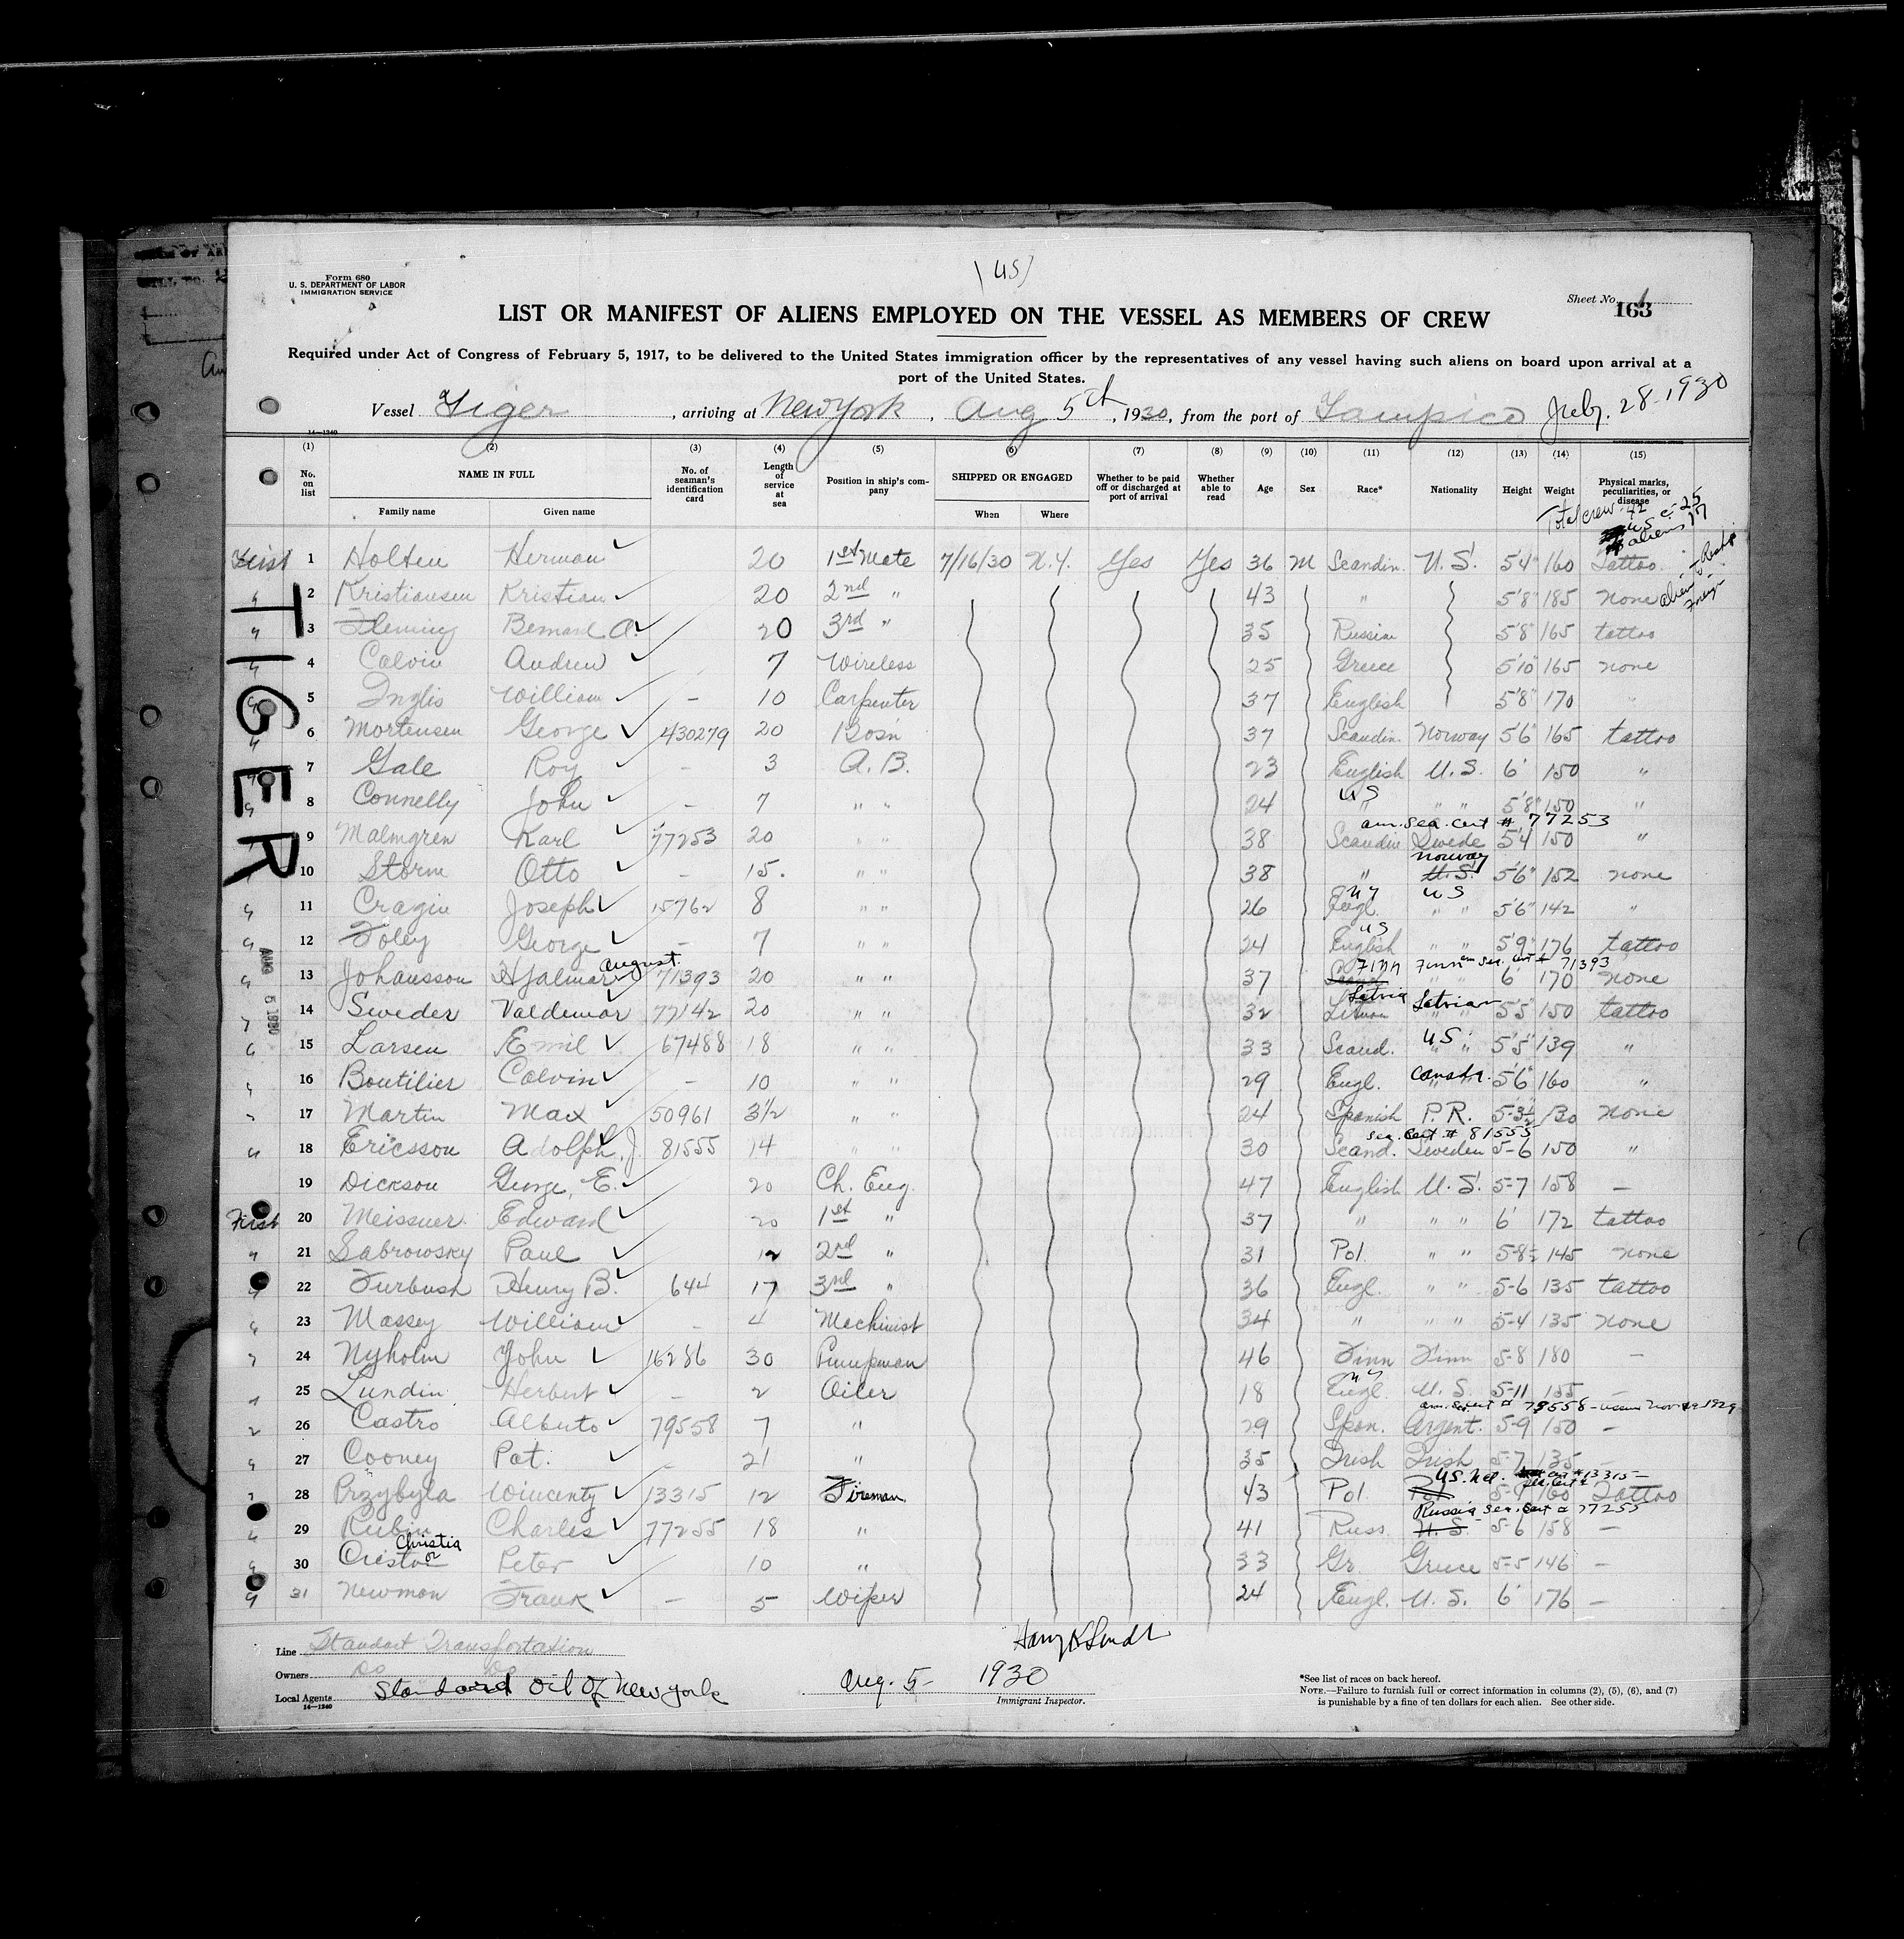 Form 680
U. S. DEPARTMENT OF LABOR
IMMIGRATION SERVICE
(US)
Sheet No. 1
163
LIST OR MANIFEST OF ALIENS EMPLOYED ON THE VESSEL AS MEMBERS OF CREW
Required under Act of Congress of February 5, 1917, to be delivered to the United States immigration officer by the representatives of any vessel having such aliens on board upon arrival at a
port of the United States.
Vessel Tiger, arriving at New York, Aug 5th, 1930, from the port of Tampico July. 28-1930
14—1240
(1) (2) (3) (4) (5) (6) (7) (8) (9) (10) (11) (12) (13) (14) (15)
No. on list NAME IN FULL No. of seaman's identification card Length of service at sea Position in ship's company SHIPPED OR ENGAGED Whether to be paid off or discharged at port of arrival Whether able to read Age Sex Race* Nationality Height Weight Physical marks, peculiarities, or disease
Family name Given name When Where
Total crew 42
US c. 25
aliens 17
TIGER
AUG 5 1930
First 1 Holten Herman 20 1st Mate 7/16/30 N.Y. Yes Yes 36 M Scandin. U.S. 5'4" 160 Tattoo
" 2 Kristiansen Kristian 20 2nd " 43 " 5'8" 185 none
" 3 Fleming Bernard A. 20 3rd " 35 Russian 5'8" 165 tattoo
" 4 Calvin Andrew 7 Wireless 25 Greece 5'10" 165 none
" 5 Inglis William - 10 Carpenter 37 English 5'8" 170 "
" 6 Mortensen George 430279 20 Bosn 37 Scandin. Norway 5'6" 165 tattoo
" 7 Gale Roy - 3 A.B. 23 English U.S. 6' 150 "
" 8 Connelly John - 7 " " 24 US " " " 5'8" 150 "
am. sea. cert # 77253
" 9 Malmgren Karl 77253 20 " " 38 Scandin Swede 5'4 150 "
Norway
10 Storm Otto - 15. " " 38 " U.S. 5'6" 152 none
NY US
" 11 Cragin Joseph 15762 8 " " 26 Engl. " " 5'6" 142 "
US
" 12 Foley George - 7 " " 24 English " " 5'9" 176 tattoo
august. Finn Finn am sea. cert # 71393
" 13 Johansson Hjalmar 71393 20 " " 37 Scand 6' 170 none
Latvia Latvian
" 14 Sweder Valdemar 77142 20 " " 32 5'5" 150 tattoo
" 15 Larsen Emil 67488 18 " " 33 Scand. US " " 5'5" 139 "
" 16 Boutilier Calvin - 10 " " 29 Engl. Canada. 5'6" 160 "
" 17 Martin Max 50961 3½ " " 24 Spanish P.R. 5-3½ 130 none
sea. cert # 81555
" 18 Ericsson Adolph. J. 81555 14 " " 30 Scand. Sweden 5-6 150 "
19 Dickson George, E. 20 Ch. Eng. 47 English U.S. 5-7 158 -
First 20 Meissner Edward 20 1st " 37 " " " 6' 172 tattoo
" 21 Sabrowsky Paul 12 2nd " 31 Pol. " " 5-8½ 145 none
" 22 Furbush Henry B. 644 17 3rd " 36 Engl. " " 5-6 135 tattoo
" 23 Massey William - 4 Machinist 34 " " " 5-4 135 none
" 24 Nyholm John 16286 30 Pumpman 46 Finn Finn 5-8 180 -
NY
" 25 Lundin Herbert - 2 Oiler 18 Engl. U.S. 5-11 155 -
am. sea. cert # 79558 - issued Nov 1929
" 26 Castro Alberto 79558 7 " 29 Span. Argent. 5-9 150 -
" 27 Cooney Pat. - 21 " 35 Irish Irish 5-7 135 -
US. Nat. cert #13315-
" 28 Przybyla Wincenty 13315 12 Fireman 43 Pol. Pol 160 Tattoo
Russia sea. cert # 77255
" 29 Rubin Charles 77255 18 " 41 Russ. U.S. 5-6 158 -
Christia or
" 30 Cristo Peter 10 " 33 Gr. Greece 5-5 146 -
" 31 Newman Frank - 5 Wiper 24 Engl. U.S. 6' 176 -
Line Standart Transportation
Owners Do Do
Local Agents Standard Oil Of New York
14—1240
Aug. 5- 1930
Immigrant Inspector.
*See list of races on back hereof.
NOTE.—Failure to furnish full or correct information in columns (2), (5), (6), and (7)
is punishable by a fine of ten dollars for each alien. See other side.